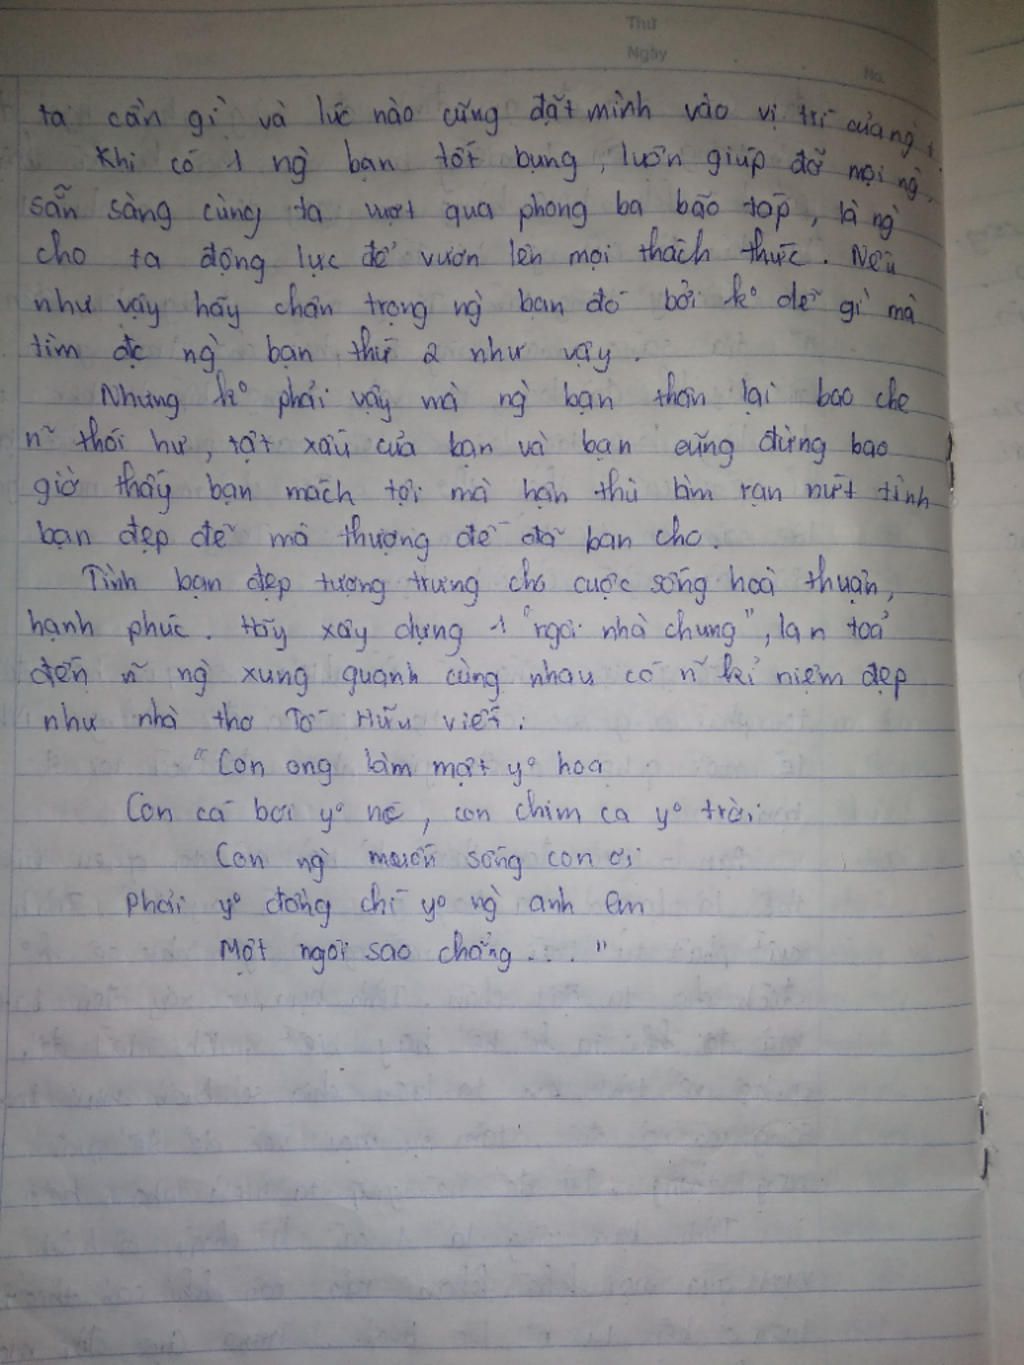 Thứ
Ngày
No.
ta cần gì và lúc nào cũng đặt mình vào vị trí của ng`
Khi có 1 ng` bạn tốt bụng, luôn giúp đỡ mọi ng`,
sẵn sàng cùng ta vượt qua phong ba bão táp, là ng`
cho ta động lực để vươn lên mọi thách thức. Nếu
như vậy hãy chân trọng ng` bạn đó bởi k° dễ gì mà
tìm đc ng` bạn thứ 2 như vậy.
Nhưng k° phải vậy mà ng` bạn thân lại bao che
n~ thói hư, tật xấu của bạn và bạn cũng đừng bao
giờ thấy bạn mách tội mà hận thù làm rạn nứt tình
bạn đẹp đẽ mà thượng đế đã ban cho.
Tình bạn đẹp tượng trưng cho cuộc sống hoà thuận,
hạnh phúc. Hãy xây dựng 1 "ngôi nhà chung", lan toả
đến n~ ng` xung quanh cùng nhau có n~ kỉ niệm đẹp
như nhà thơ Tố Hữu viết:
"Con ong làm mật y° hoa
Con cá bơi y° nc, con chim ca y° trời
Con ng` muốn sống con ơi
Phải y° đồng chí y° ng` anh em
Một ngôi sao chẳng..."